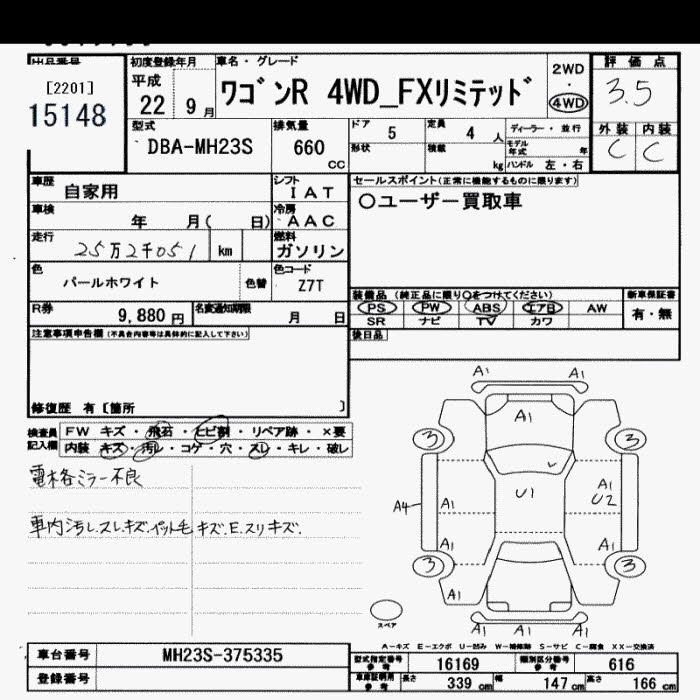 出品番号
[2201]
15148
初度登録年月
平成
22 9 月
車名・グレード
ワゴンR 4WD_FXリミテッド
2WD
4WD
評価点
3.5
外装 内装
C C
型式
DBA-MH23S
排気量
660
cc
ドア 5
定員 4 人
形状
積載 kg
ディーラー・並行
モデル年式 年
ハンドル 左・右
車歴
自家用
シフト
IAT
セールスポイント(正常に機能するものに限ります)
○ユーザー買取車
車検
年 月( 日)
冷房
AAC
走行
25万2千051 km
燃料
ガソリン
色
パールホワイト
色替
色コード
Z7T
装備品(純正品に限り○をつけてください)
新車保証書
PS PW ABS エアB AW
有・無
SR ナビ TV カワ
R券
9,880 円
名変通知期限
月 日
後日品
注意事項申告欄(不具合内容等は具体的に記入して下さい)
修復歴 有[箇所 ]
検査員
記入欄
FW キズ・飛石・ヒビ割・リペア跡・×要
内装 キズ・汚レ・コゲ・穴・スレ・キレ・破レ
電格ミラー不良
車内汚レ.スレキズ.ペット毛キズ.E.スリキズ.
A1 A1
A1
3 3
U1
A1
U2
A4
A1
A1 A1
3 3
A1 A1
A1 A1
スペア
A-キズ E-エクボ U-凹み W-補修跡 S-サビ C-腐食 XX-交換済
車台番号
MH23S-375335
登録番号
型式指定番号
参考
16169
類別区分番号
参考
616
車庫証明用
参考
長さ 339 cm
幅 147 cm
高さ 166 cm